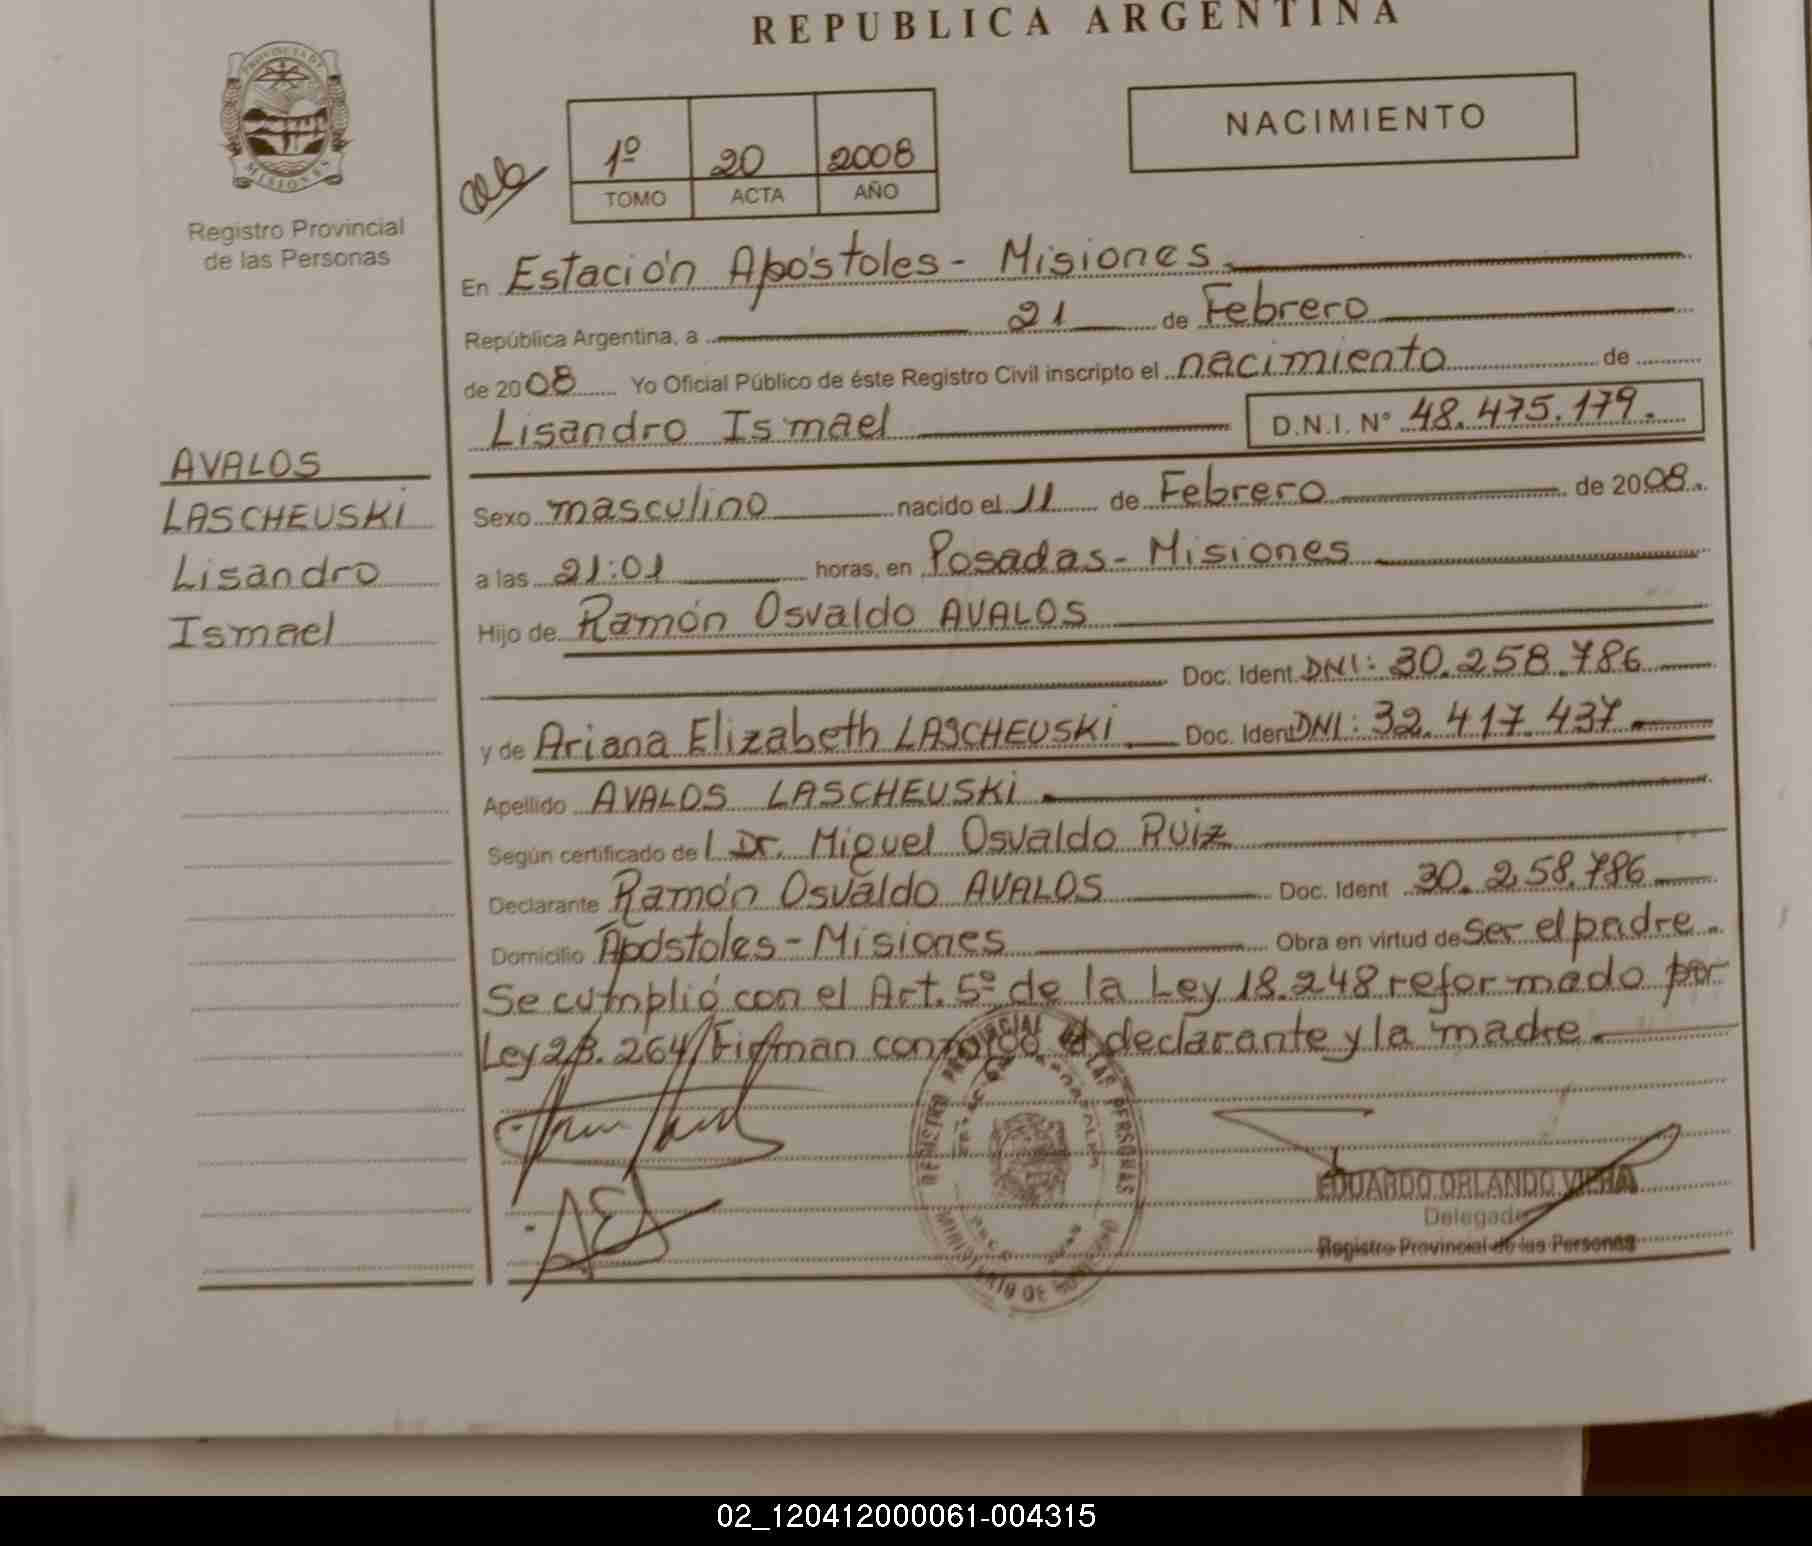 REPUBLICA ARGENTINA
PROVINCIA DE
MISIONES
Registro Provincial
de las Personas
1º 20 2008
TOMO ACTA AÑO
NACIMIENTO
En Estación Apóstoles - Misiones
República Argentina, a 21 de Febrero
de 2008 Yo Oficial Público de éste Registro Civil inscripto el nacimiento de
Lisandro Ismael D.N.I. Nº 48.475.179.
AVALOS
LASCHEUSKI
Lisandro
Ismael
Sexo masculino nacido el 11 de Febrero de 2008.
a las 21:01 horas, en Posadas - Misiones
Hijo de Ramón Osvaldo AVALOS
Doc. Ident. DNI: 30.258.786
y de Ariana Elizabeth LASCHEUSKI Doc. Ident DNI: 32.417.437.
Apellido AVALOS LASCHEUSKI.
Según certificado del Dr. Miguel Osvaldo Ruiz
Declarante Ramón Osvaldo AVALOS Doc. Ident 30.258.786
Domicilio Apóstoles - Misiones Obra en virtud de ser el padre.
Se cumplió con el Art. 5º de la Ley 18.248 reformado por
Ley 23.264/Firman conmigo el declarante y la madre.
REGISTRO PROVINCIAL DE LAS PERSONAS
MINISTERIO DE GOBIERNO
EDUARDO ORLANDO VIERA
Delegado
Registro Provincial de las Personas
02_120412000061-004315